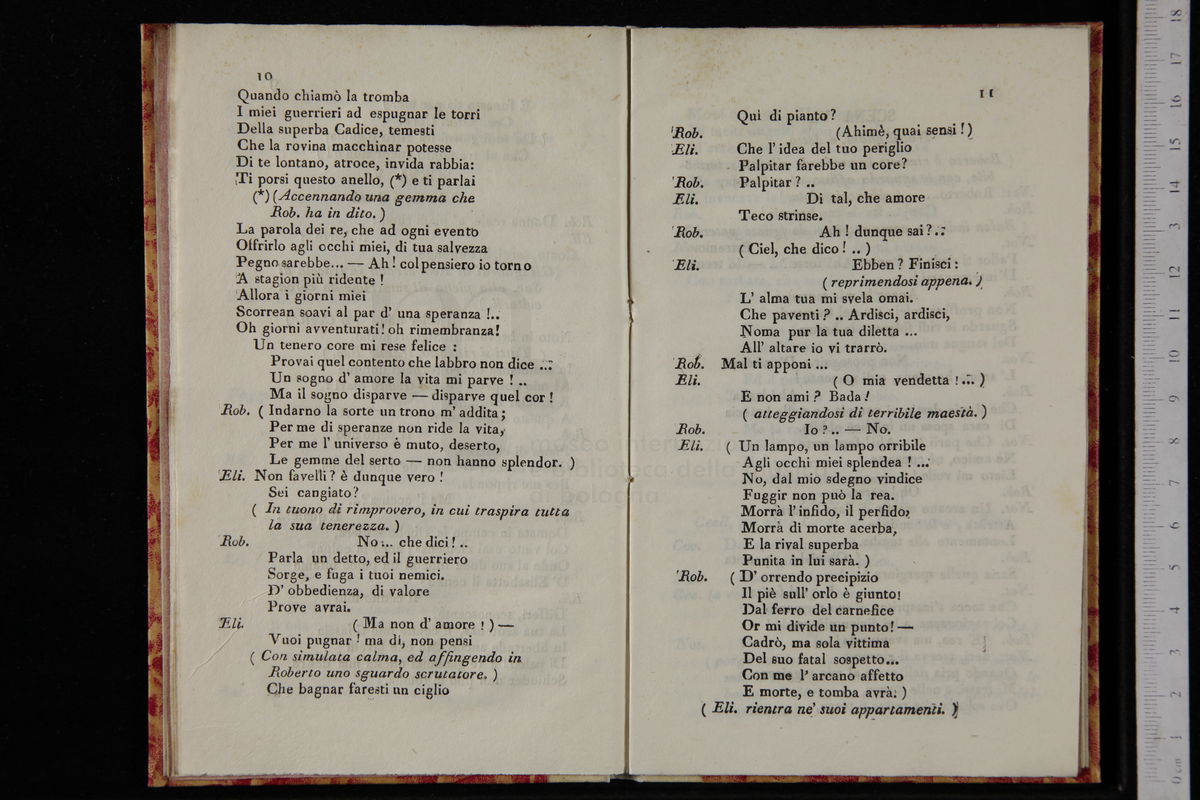 10
Quando chiamò la tromba
I miei guerrieri ad espugnar le torri
Della superba Cadice, temesti
Che la rovina macchinar potesse
Di te lontano, atroce, invida rabbia:
Ti porsi questo anello, (*) e ti parlai
(*) (Accennando una gemma che
Rob. ha in dito.)
La parola dei re, che ad ogni evento
Offrirlo agli occhi miei, di tua salvezza
Pegno sarebbe... — Ah! col pensiero io torno
A stagion più ridente!
Allora i giorni miei
Scorrean soavi al par d' una speranza!..
Oh giorni avventurati! oh rimembranza!
Un tenero core mi rese felice :
Provai quel contento che labbro non dice ...
Un sogno d' amore la vita mi parve ! ..
Ma il sogno disparve — disparve quel cor !
Rob. ( Indarno la sorte un trono m' addita;
Per me di speranze non ride la vita,
Per me l' universo è muto, deserto,
Le gemme del serto — non hanno splendor. )
Eli. Non favelli? è dunque vero !
Sei cangiato?
( In tuono di rimprovero, in cui traspira tutta
la sua tenerezza. )
Rob. No... che dici! ..
Parla un detto, ed il guerriero
Sorge, e fuga i tuoi nemici.
D' obbedienza, di valore
Prove avrai.
Eli. ( Ma non d' amore ! ) —
Vuoi pugnar ! ma di, non pensi
( Con simulata calma, ed affingendo in
Roberto uno sguardo scrutatore. )
Che bagnar faresti un ciglio
11
Qui di pianto?
Rob. (Ahimè, quai sensi!)
Eli. Che l' idea del tuo periglio
Palpitar farebbe un core?
Rob. Palpitar? ..
Eli. Di tal, che amore
Teco strinse.
Rob. Ah! dunque sai?..
( Ciel, che dico! .. )
Eli. Ebben? Finisci:
( reprimendosi appena. )
L' alma tua mi svela omai.
Che paventi? .. Ardisci, ardisci,
Noma pur la tua diletta ...
All' altare io vi trarrò.
Rob. Mal ti apponi ...
Eli. ( O mia vendetta !... )
E non ami? Bada!
( atteggiandosi di terribile maestà. )
Rob. Io ?.. — No.
Eli. ( Un lampo, un lampo orribile
Agli occhi miei splendea ! ...
No, dal mio sdegno vindice
Fuggir non può la rea.
Morrà l' infido, il perfido,
Morrà di morte acerba,
E la rival superba
Punita in lui sarà. )
Rob. ( D' orrendo precipizio
Il piè sull' orlo è giunto!
Dal ferro del carnefice
Or mi divide un punto! —
Cadrò, ma sola vittima
Del suo fatal sospetto...
Con me l' arcano affetto
E morte, e tomba avrà. )
( Eli. rientra ne' suoi appartamenti. )
museo internazionale
biblioteca della
di bologna